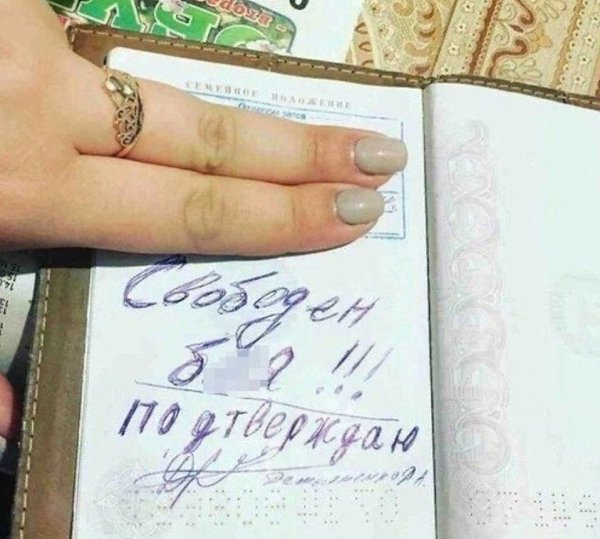 СЕМЕЙНОЕ ПОЛОЖЕНИЕ
Свободен
б я !!!
подтверждаю